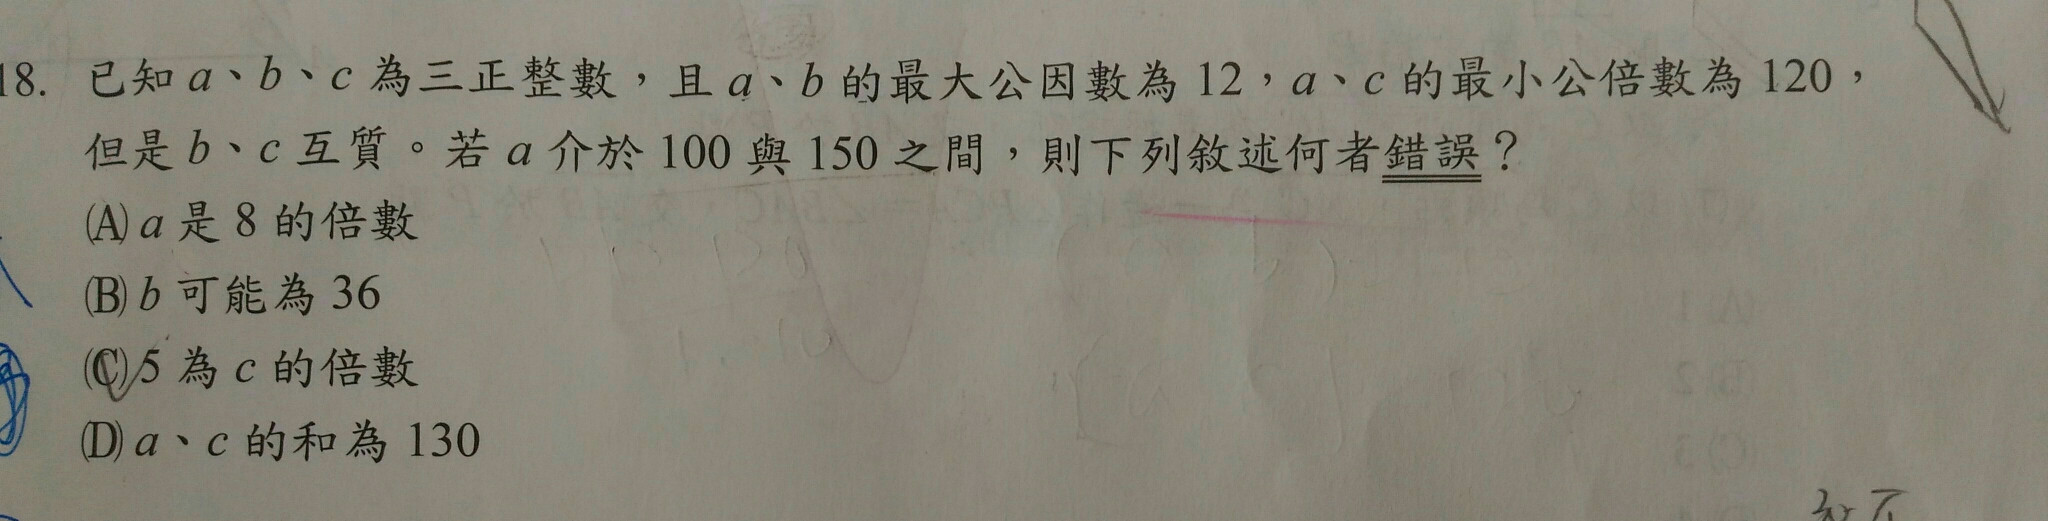 18. 已知a、b、c為三正整數，且a、b的最大公因數為12，a、c的最小公倍數為120，
但是b、c互質。若a介於100與150之間，則下列敘述何者錯誤？
(A) a是8的倍數
(B) b可能為36
(C) 5為c的倍數
(D) a、c的和為130